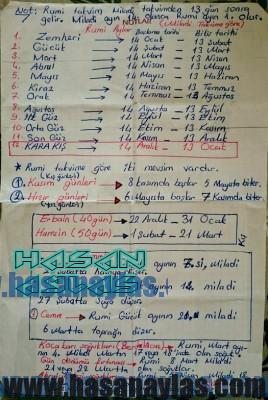 Not: Rumi takvim Miladi takvimden 13 gün sonra
gelir. Miladi ayın 14. olarsa Rumi ayın 1. olur.
NOTLAR
Rumi Aylar Başlama tarihi Bitiş tarihi
(Miladi Takvime göre)
1. Zemheri → 14 Ocak – 13 Şubat
2. Gücüt → 14 Şubat – 13 Mart
3. Mart → 14 Mart – 13 Nisan
4. Abrul → 14 Nisan – 13 Mayıs
5. Mayıs → 14 Mayıs – 13 Haziran
6. Kiraz → 14 Haziran – 13 Temmuz
7. Orak → 14 Temmuz – 13 Ağustos
8. Ağustos → 14 Ağustos – 13 Eylül
9. İlk Güz → 14 Eylül – 13 Ekim
10. Orta Güz → 14 Ekim – 13 Kasım
11. Son Güz → 14 Kasım – 13 Aralık
12. KARAKIŞ → 14 Aralık – 13 Ocak
* Rumi takvime göre iki mevsim vardır.
(Kış günleri)
1. Kasım günleri → 8 Kasımda başlar 5 Mayısta biter.
2. Hızır günleri → 6 Mayısta başlar 7 Kasımda biter.
Erbain (40 gün) → 22 Aralık – 31 Ocak
Hamsin (50 gün) → 1 Şubat – 21 Mart
Kış
HASAN
ayının 7. si, miladi
havaya düşer.
ayının 14. miladi
27 Şubatta suya düşer.
3) Cemre → Rumi Gücüt ayının miladi
6 Martta toprağa düşer.
Kocakarı soğukları (Berdelacuz) → Rumi Mart ayı-
nın 4. Miladi Martın 17 veya 18'inde olan soğuk.
Gün dönümü fırtınası → Rumi 8 Mart Miladi
21 veya 22 Martta olan soğuklar.
www.hasanavlas.com